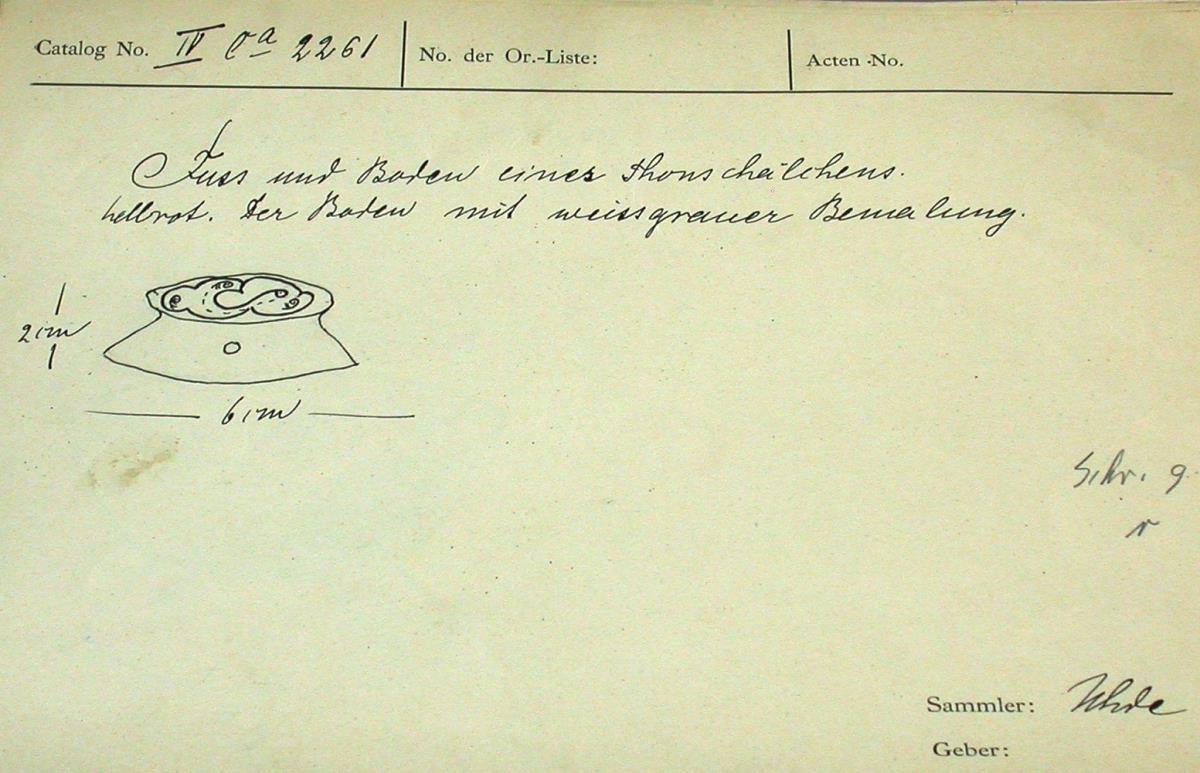 Catalog No. IV Ca 2261 No. der Or.-Liste: Acten-No.
Fuss und Boden eines Thonschälchens.
hellrot. Der Boden mit weissgrauer Bemalung.
2 cm
6 cm
Schr. 9
r
Sammler: Uhde
Geber: